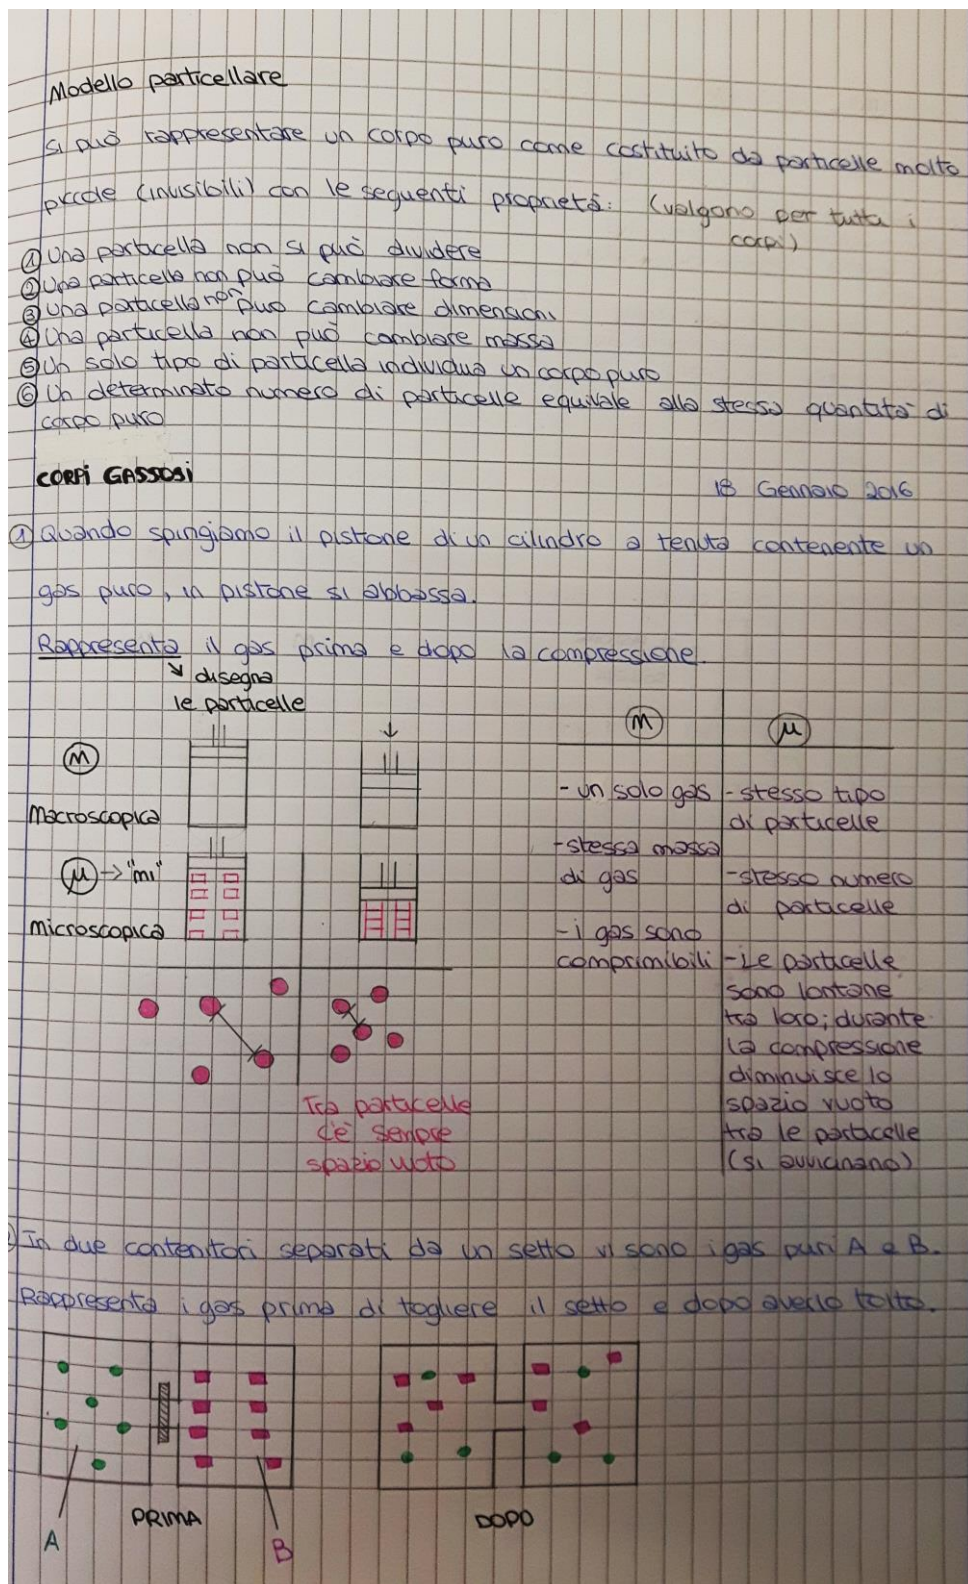 Modello particellare
si può rappresentare un corpo puro come costituito da particelle molto
piccole (invisibili) con le seguenti proprietà: (valgono per tutta i
corpi)
① Una particella non si può dividere
② Una particella non può cambiare forma
③ Una particella non può cambiare dimensioni
④ Una particella non può cambiare massa
⑤ Un solo tipo di particella individua un corpo puro
⑥ Un determinato numero di particelle equivale alla stessa quantità di
corpo puro
CORPI GASSOSI
18 Gennaio 2016
① Quando spingiamo il pistione di un cilindro a tenuta contenente un
gas puro, in pistone si abbassa.
Rappresenta il gas prima e dopo la compressione.
↘ disegna
le particelle
M
Macroscopica
μ → "mi"
microscopica
Tra particelle
c'è sempre
spazio vuoto
M
- un solo gas
- stessa massa
di gas
- i gas sono
comprimibili
μ
- stesso tipo
di particelle
- stesso numero
di particelle
- Le particelle
sono lontane
tra loro; durante
la compressione
diminuisce lo
spazio vuoto
tra le particelle
(si avvicinano)
In due contenitori separati da un setto vi sono i gas puri A e B.
Rappresenta i gas prima di togliere il setto e dopo averlo tolto.
A
PRIMA
B
DOPO